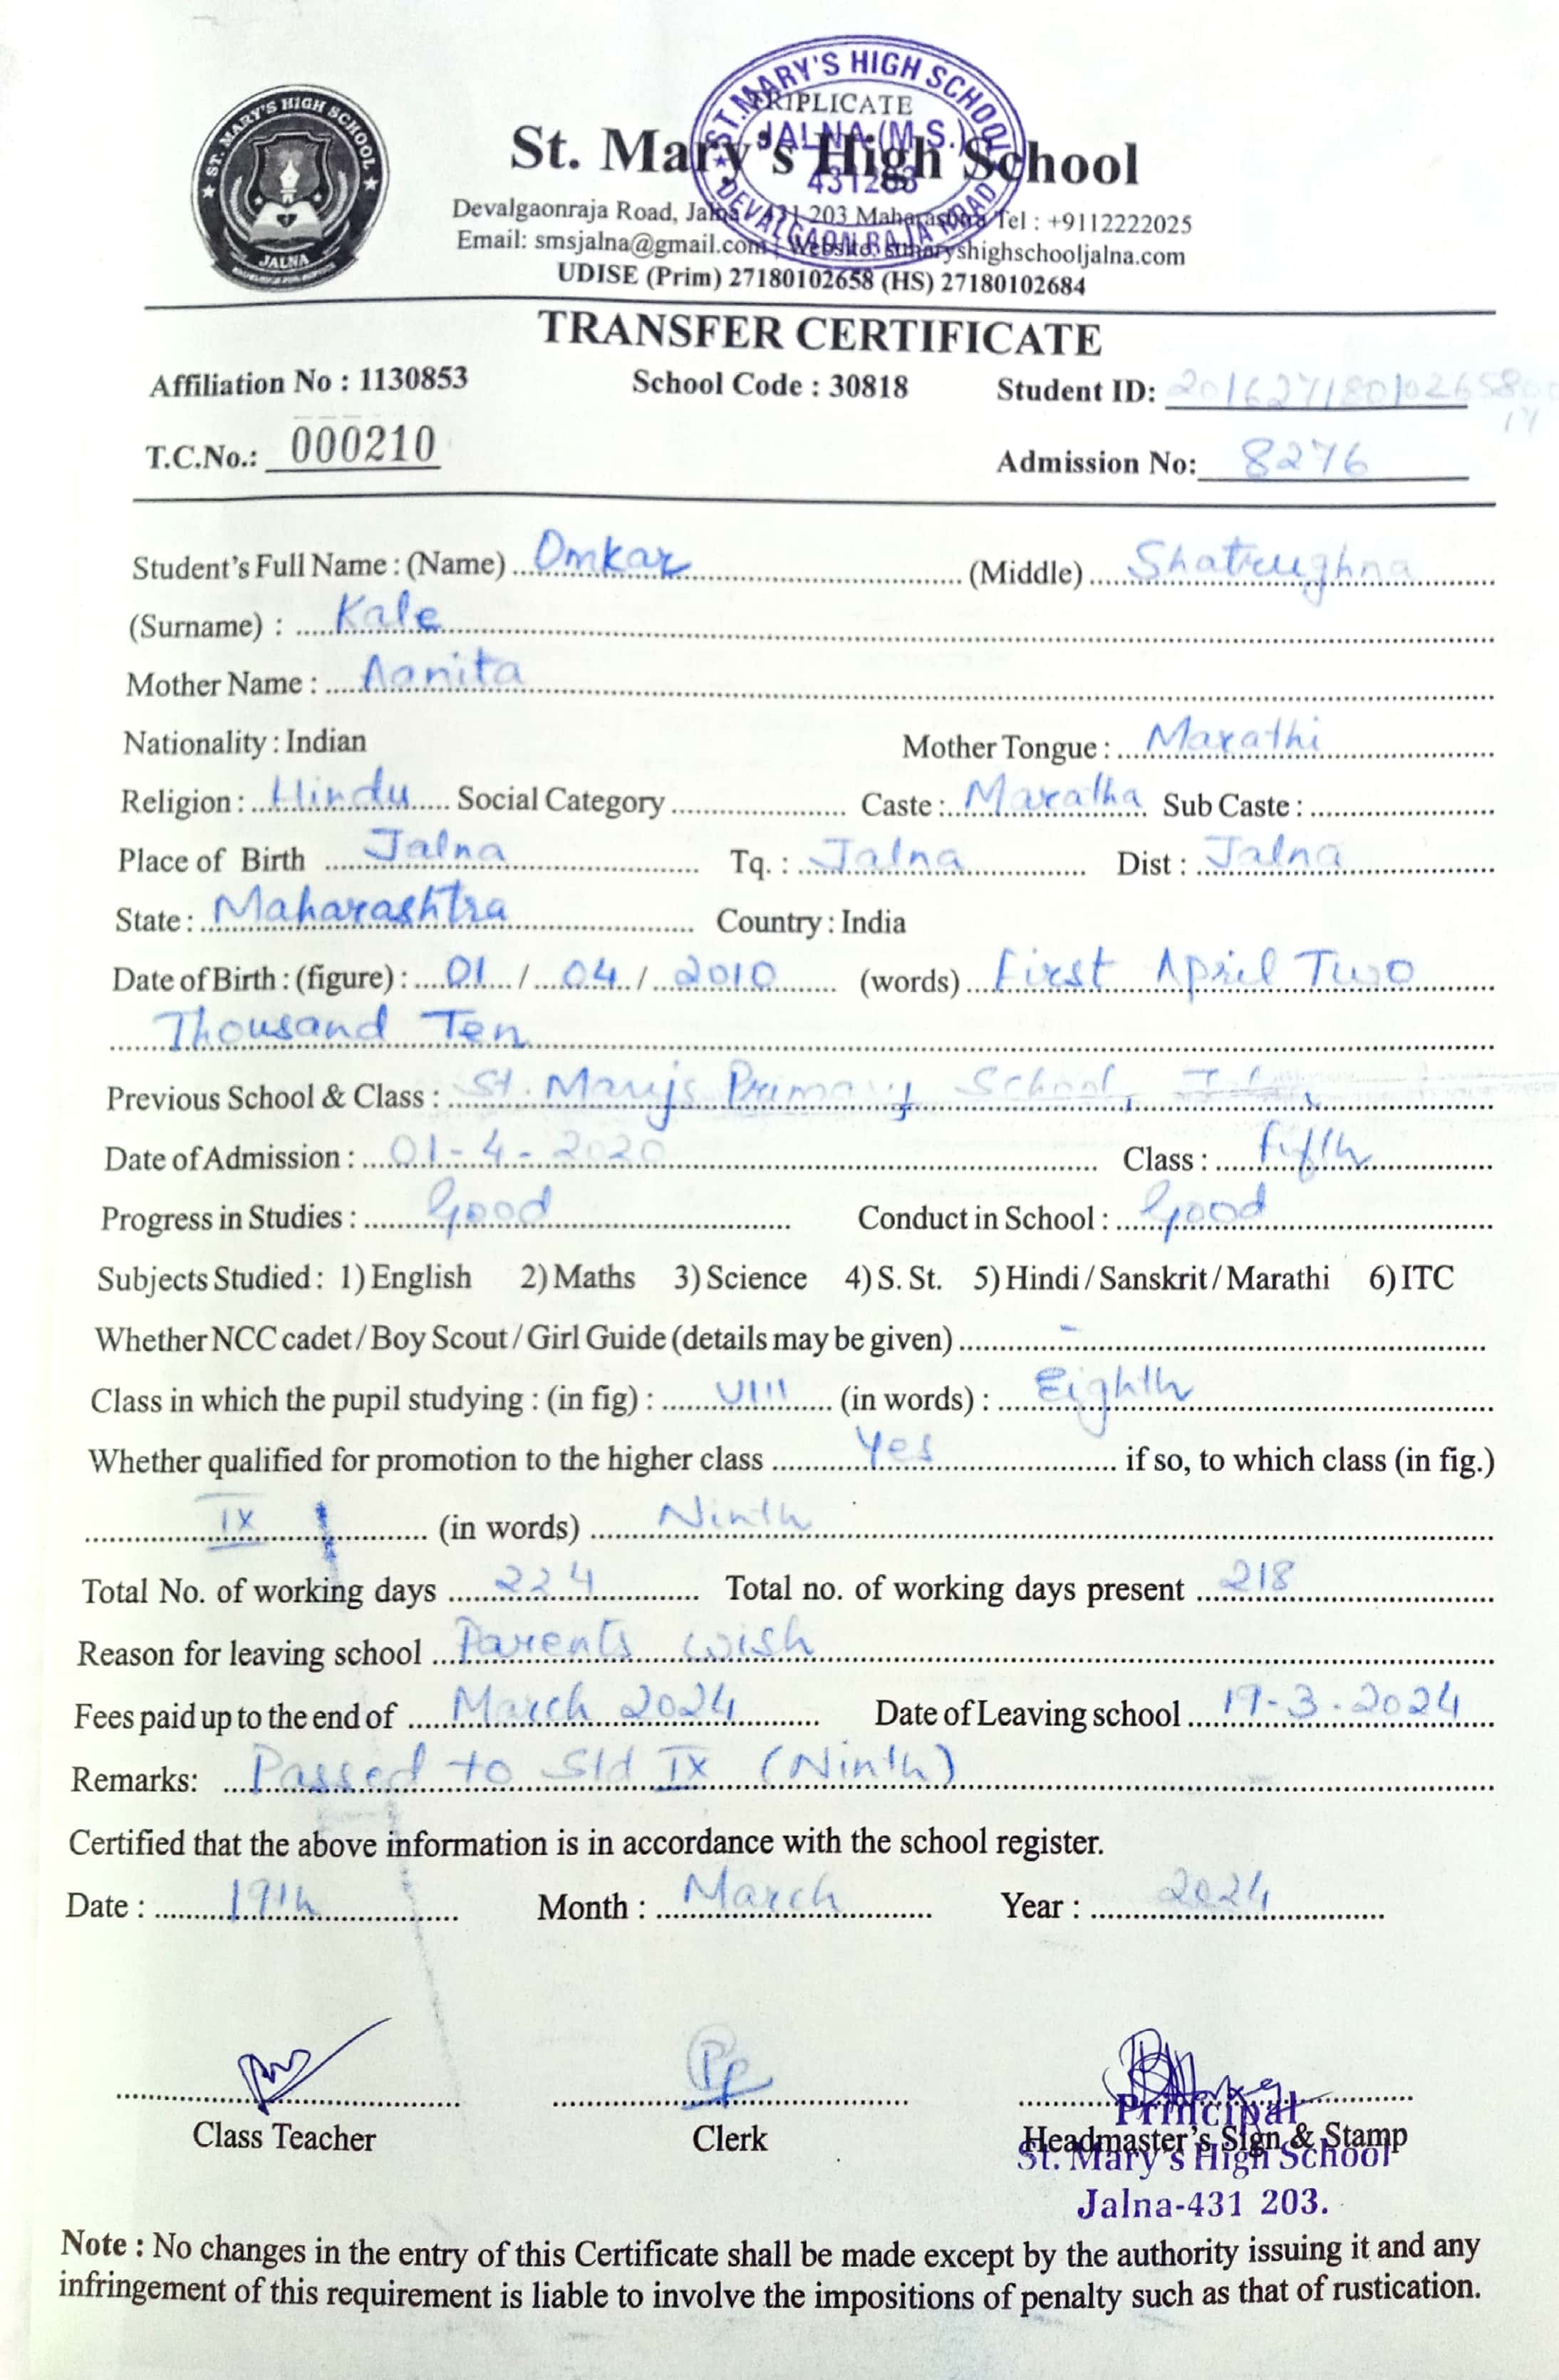 ST. MARY'S HIGH SCHOOL
JALNA
ST. MARY'S HIGH SCHOOL
JALNA (M.S.)
DEVALGAON RAJA ROAD
TRIPLICATE
St. Mary's High School
Devalgaonraja Road, Jalna - 431 203 Maharashtra Tel : +9112222025
Email: smsjalna@gmail.com | Website: stmaryshighschooljalna.com
UDISE (Prim) 27180102658 (HS) 27180102684
TRANSFER CERTIFICATE
Affiliation No : 1130853 School Code : 30818 Student ID:
T.C.No.: 000210 Admission No: 8276
Student's Full Name : (Name) Omkar (Middle) Shatrughna
(Surname) : Kale
Mother Name : Aanita
Nationality : Indian Mother Tongue : Marathi
Religion : Hindu Social Category Caste : Maratha Sub Caste :
Place of Birth Jalna Tq. : Jalna Dist : Jalna
State : Maharashtra Country : India
Date of Birth : (figure) : 01 / 04 / 2010 (words) First April Two
Thousand Ten
Previous School & Class : St. Mary's Primary School,
Date of Admission : 01-4-2020 Class : Fifth
Progress in Studies : Good Conduct in School : Good
Subjects Studied : 1) English 2) Maths 3) Science 4) S. St. 5) Hindi / Sanskrit / Marathi 6) ITC
Whether NCC cadet / Boy Scout / Girl Guide (details may be given) -
Class in which the pupil studying : (in fig) : VIII (in words) : Eighth
Whether qualified for promotion to the higher class Yes if so, to which class (in fig.)
IX (in words) Ninth
Total No. of working days 224 Total no. of working days present 218
Reason for leaving school Parents wish
Fees paid up to the end of March 2024 Date of Leaving school 19-3-2024
Remarks: Passed to Std IX (Ninth)
Certified that the above information is in accordance with the school register.
Date : 19th Month : March Year : 2024
Class Teacher Clerk Headmaster's Sign & Stamp
Principal
St. Mary's High School
Jalna-431 203.
Note : No changes in the entry of this Certificate shall be made except by the authority issuing it and any
infringement of this requirement is liable to involve the impositions of penalty such as that of rustication.